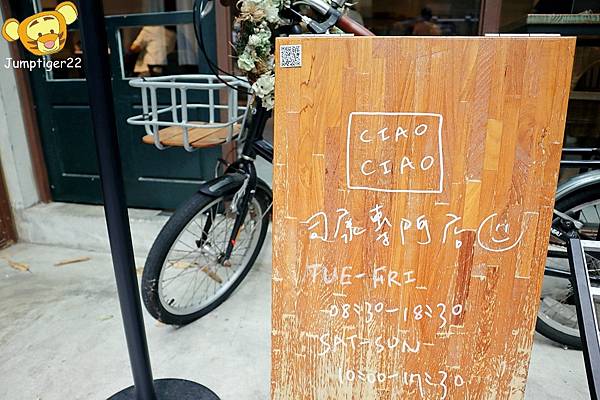 Jumptiger22
CIAO
CIAO
司康專門店
TUE-FRI
08:30-18:30
SAT-SUN
10:00-17:30